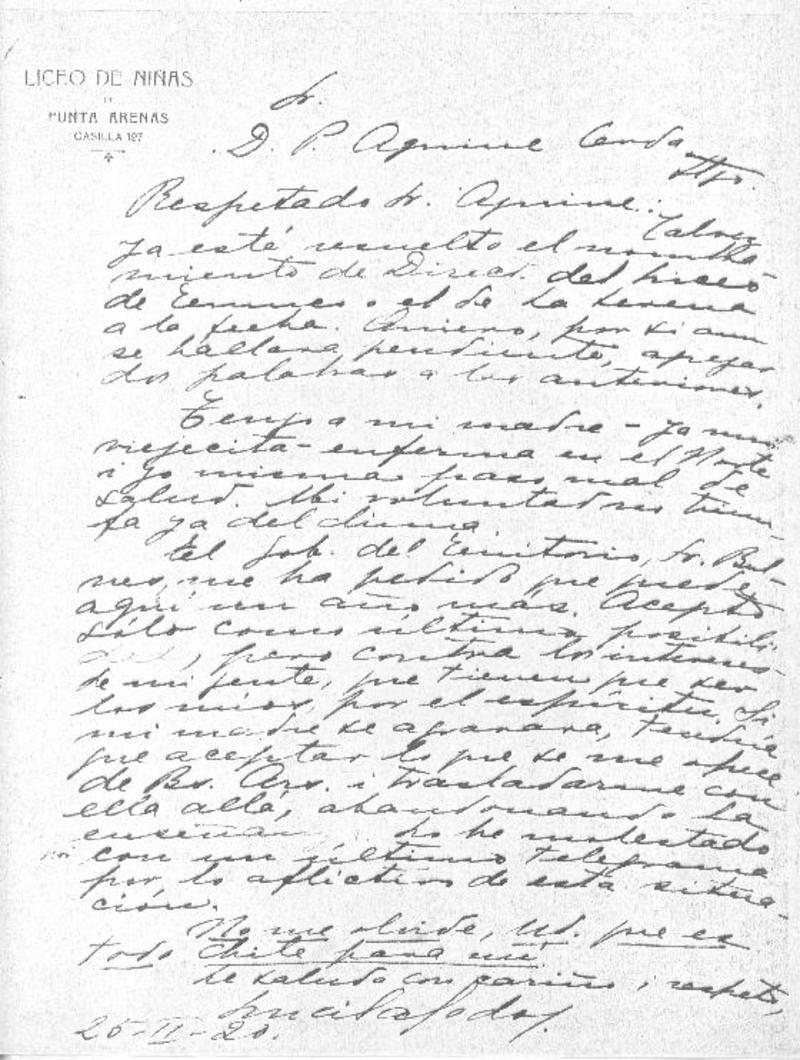 LICEO DE NIÑAS
DE
PUNTA ARENAS
CASILLA 127
Sr.
D. P. Aguirre Cerda
Stgo.
Respetado Sr. Aguirre.
Talvez
ya esté resuelto el nombra-
miento de Direct. del Liceo
de Temuco o el de La Serena
a la fecha. Quiero, por si aun
se hallara pendiente, agregar
dos palabras a las anteriores.
Tengo a mi madre - ya mui
viejecita - enferma en el Norte
i yo misma paso mal de
salud. Mi voluntad no triun-
fa ya del clima.
El Gob. del Territorio, Sr. Bul-
nes, me ha pedido que quede
aquí un año más. Acepto
sólo como última posibili
dad, pero contra los intereses
de mi jente, que tienen que ser
los mios, por el espíritu. Si
mi madre se agravara, tendría
que aceptar lo que se me ofrece
de Bs. Ars. i trasladarme con
ella allá, abandonando la
enseñan Lo he molestado
con un último telegrama
por lo aflictivo de esta situa-
ción.
No me olvide, Ud. que es
todo Chile para mí.
Le saluda con cariño i respeto,
Lucila Godoy.
25-II-20.